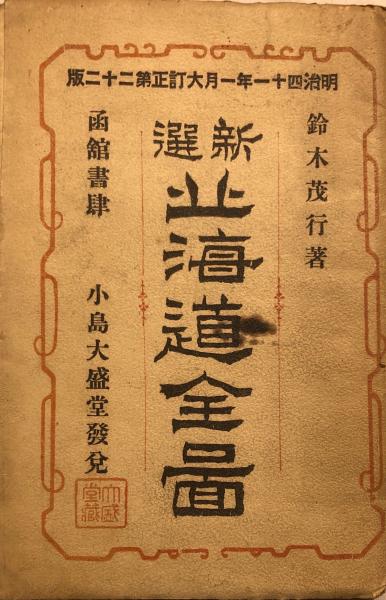 明治四十一年一月大訂正第二十二版
鈴木茂行著
新選
北海道全圖
函館書肆 小島大盛堂發兌
大盛堂藏